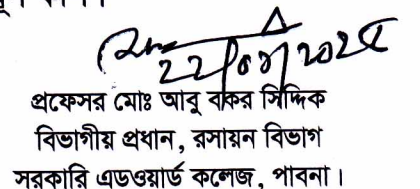 প্রফেসর মোঃ আবু বকর সিদ্দিক
বিভাগীয় প্রধান, রসায়ন বিভাগ
সরকারি এডওয়ার্ড কলেজ, পাবনা।